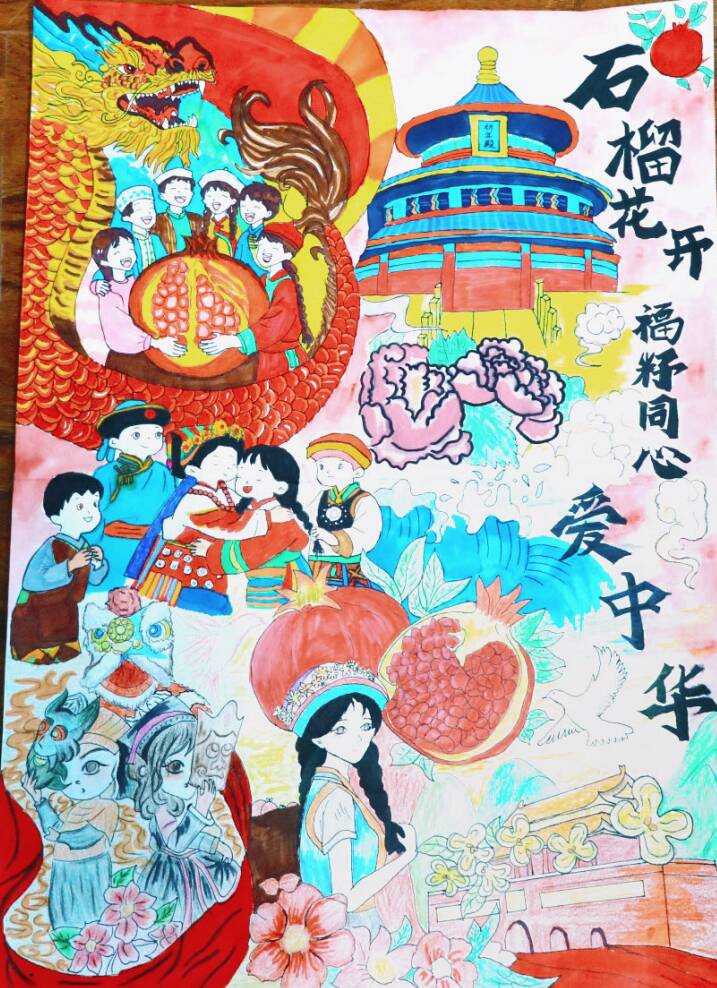 石榴花开
福籽同心
爱中华
祈年殿